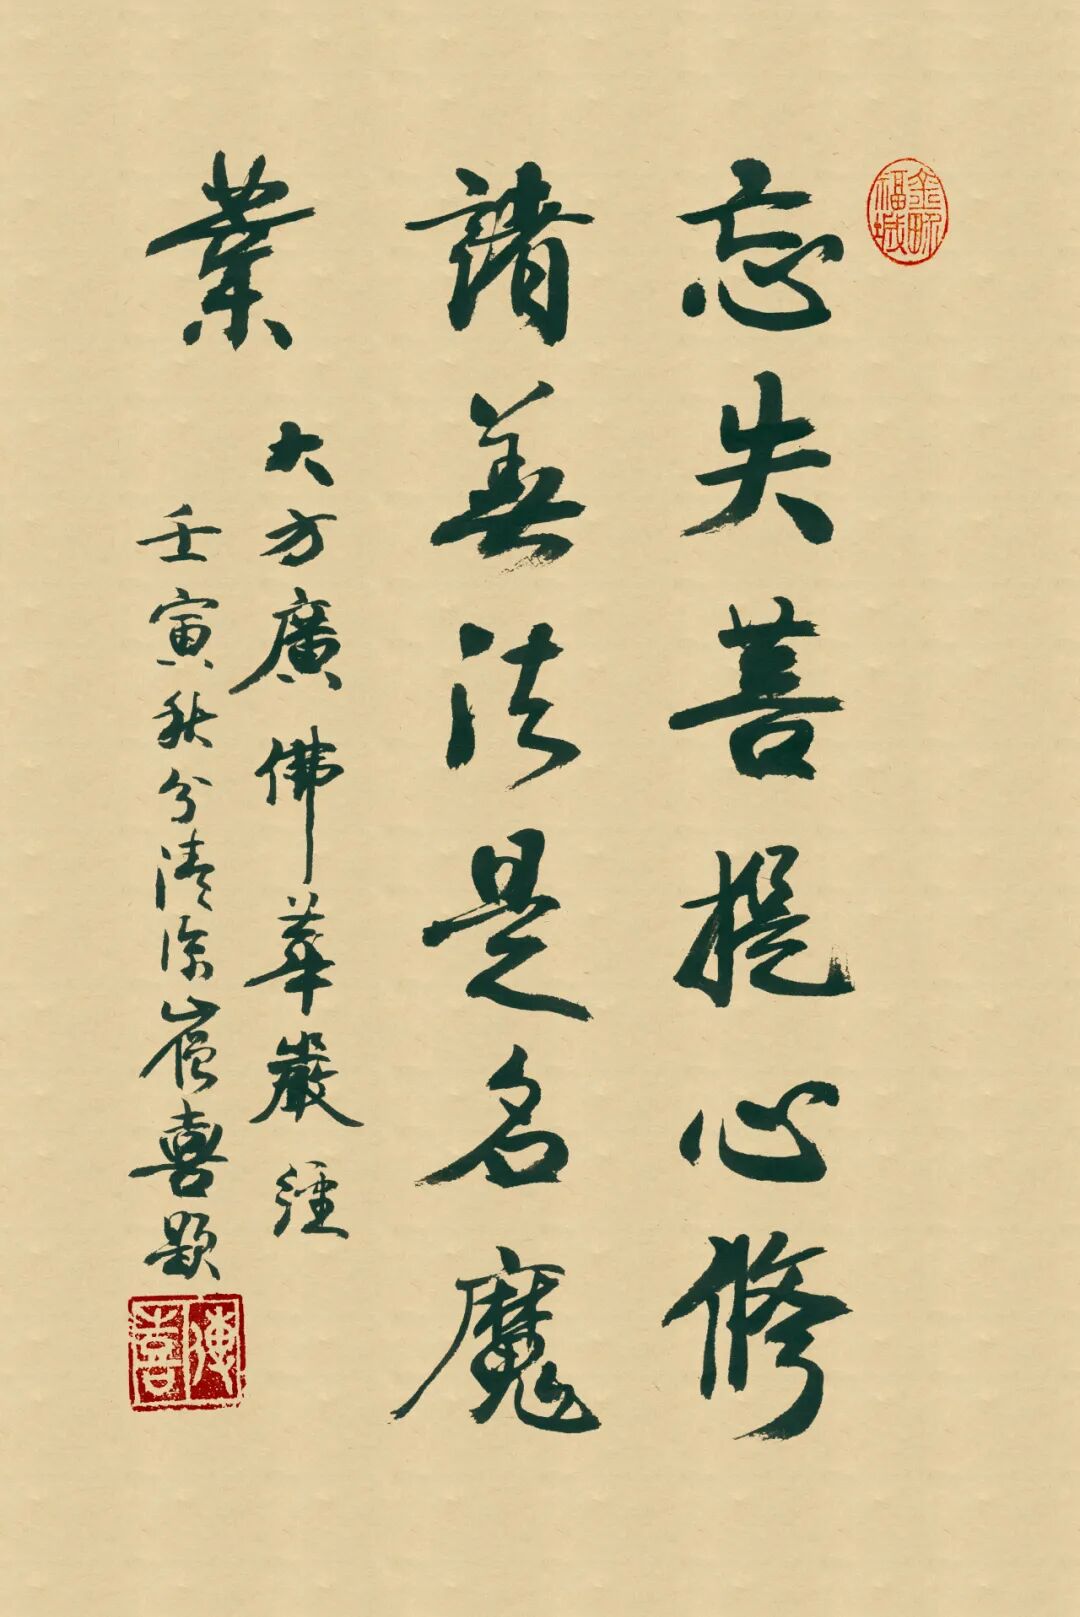 忘失菩提心修
諸善法是名魔
業
大方廣佛華嚴經
壬寅秋分清凉 喜題